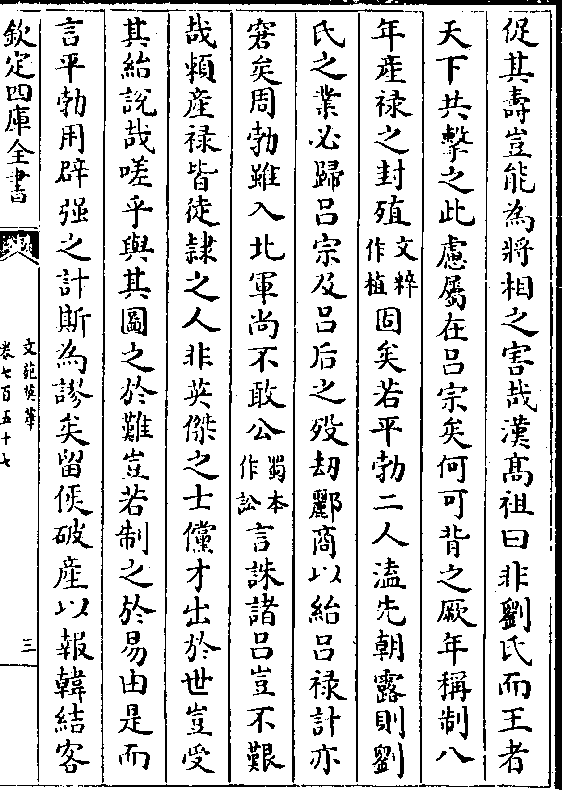 促其壽豈能為將相之害哉漢髙祖曰非劉氏而王者
天下共擊之此慮屬在呂宗矣何可背之厥年稱制八
年産禄之封殖文粹作植固矣若平勃二人溘先朝露則劉
氏之業必歸呂宗及呂后之殁刧酈商以紿呂禄計亦
窘矣周勃雖入北軍尚不敢公蜀本作訟言誅諸呂豈不艱
哉頼産禄皆徒隷之人非英傑之士儻才出於世豈受
其紿說哉嗟乎與其圖之於難豈若制之於易由是而
言平勃用辟强之計斯為謬矣留侯破産以報韓結客
欽定四庫全書
文苑英華
卷七百五十七
三